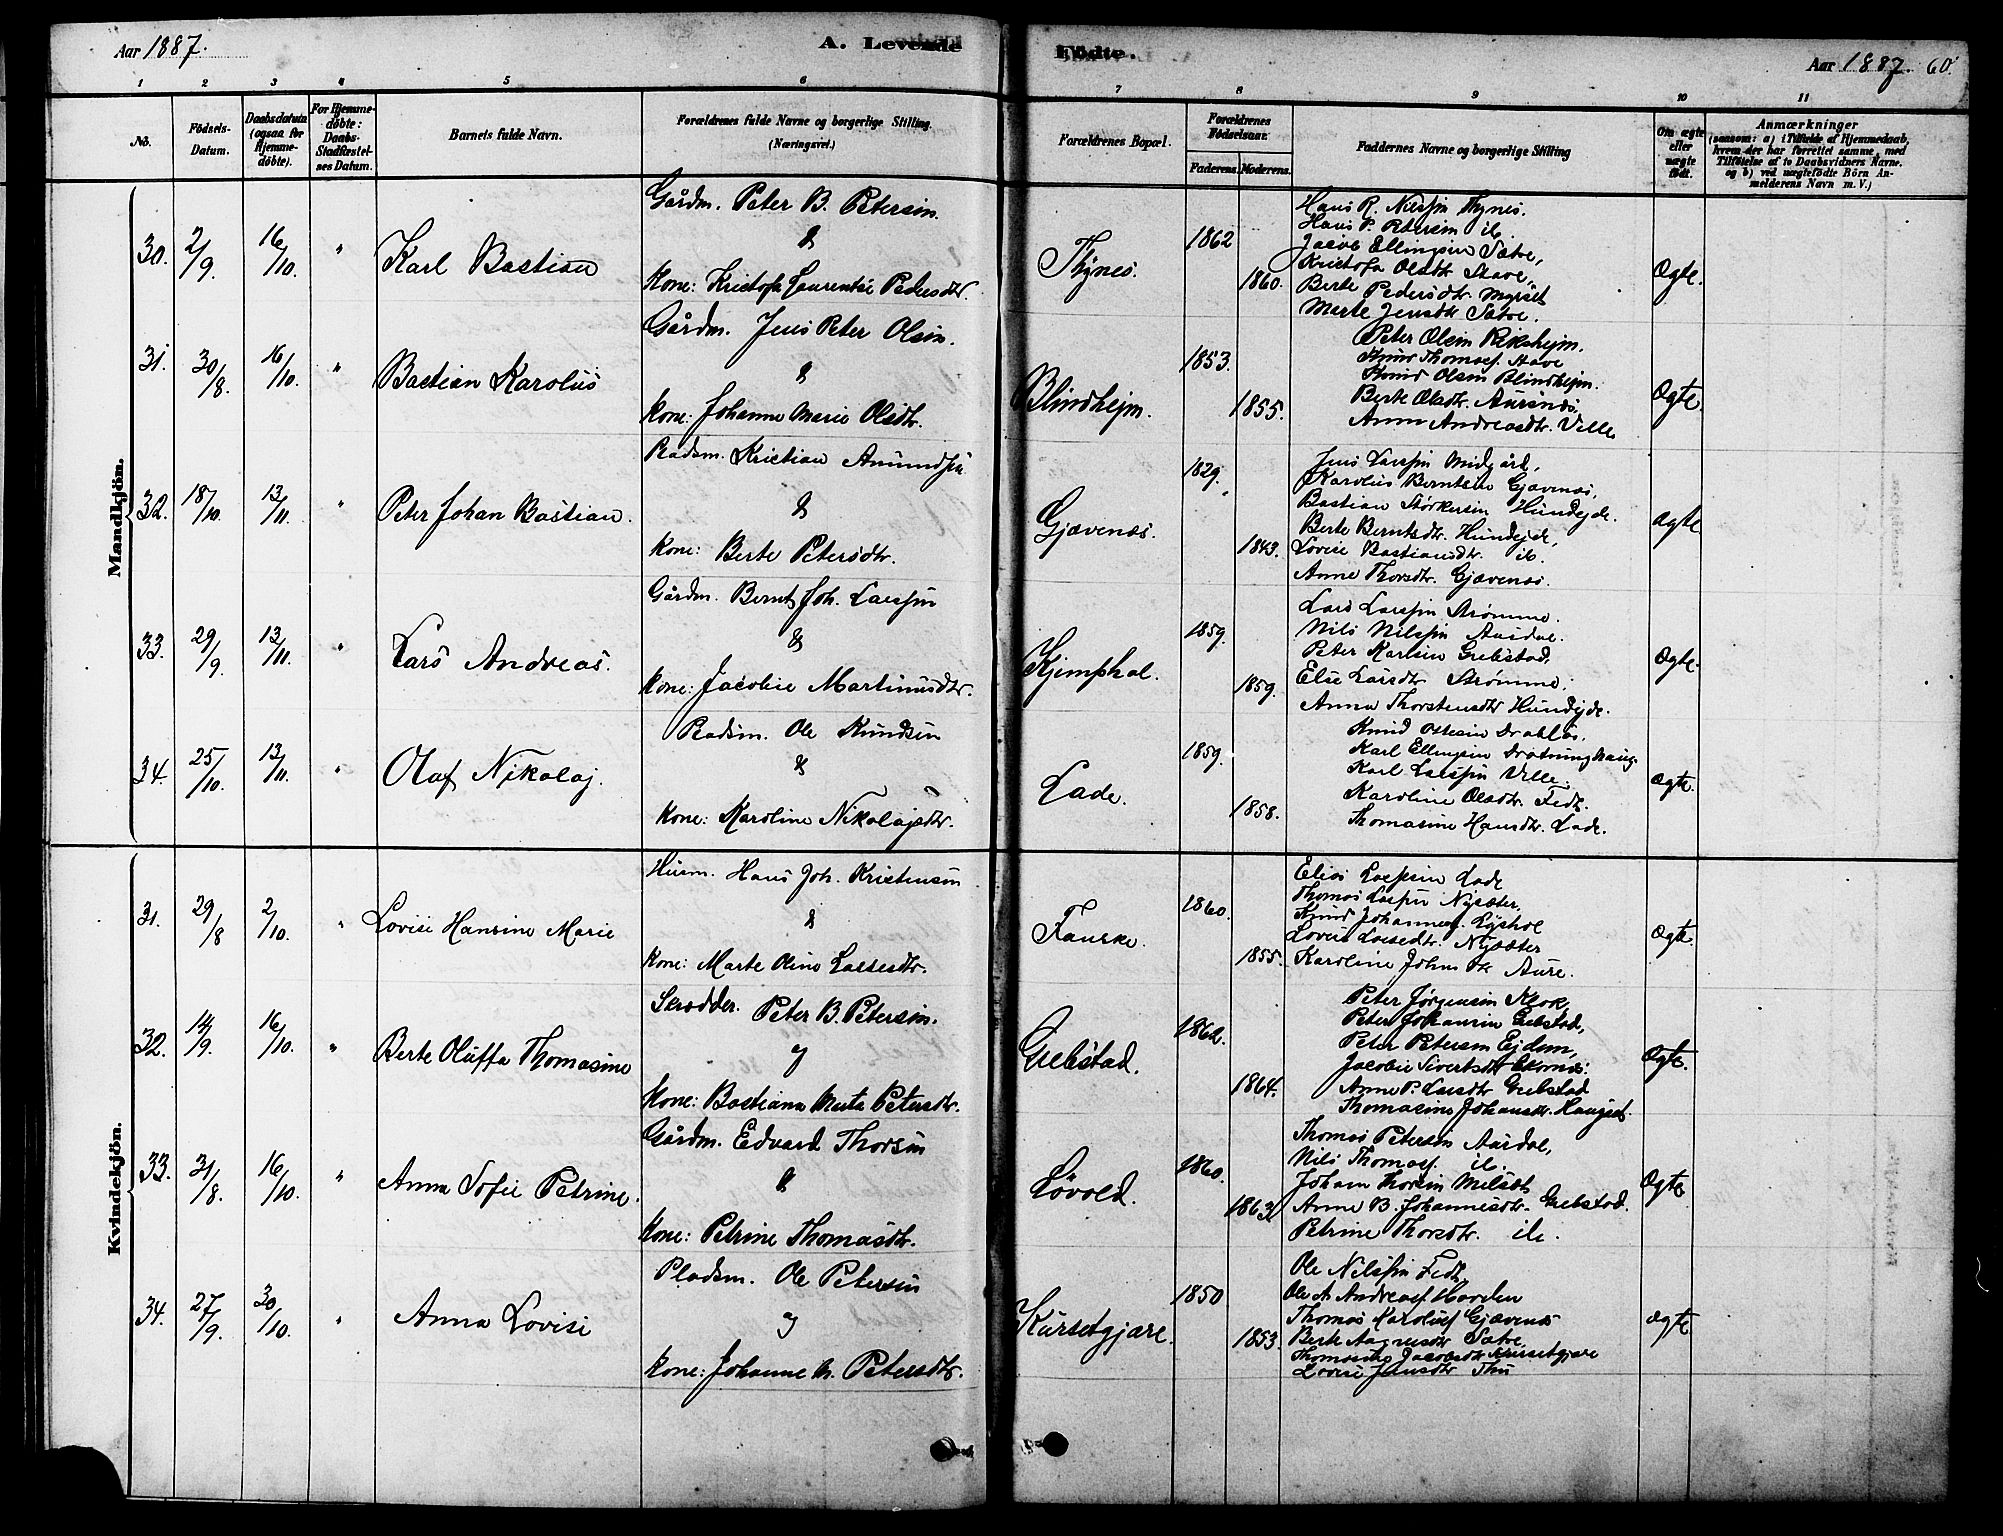 Aar 1887.
A. Levende
Födte.
Aar 1887. 60.
1 2 3 4 5 6 7 8 9 10 11
No.
Födsels-Datum.
Daabsdatum (ogsaa for Hjemme-döbte).
For Hjemme-döbte: Daabs-Stadfæstel-ses Datum.
Barnets fulde Navn.
Forældrenes fulde Navne og borgerlige Stilling. (Næringsvei.)
Forældrenes Bopæl.
Forældrenes Födselsaar.
Faderens. Moderens.
Faddernes Navne og borgerlige Stilling
Om ægte eller uægte födt.
Anmærkninger
(saasom: a) i Tilfælde af Hjemmedaab, hvem der har forrettet samme, med Tilföielse af to Daabsvidners Navne. og b) ved uægtefödte Börn An-melderens Navn m. V.)
Mandkjön.
30. 2/9. 16/10. " Karl Bastian
Gårdm. Peter B. Petersen.
&
Kone: Kristofa Laurentse Pedersdtr.
Thynes. 1862 1860.
Hans R. Nilssen Thynes.
Hans P. Petersen ib.
Jacob Ellingsen Satve,
Kristofa Olsdtr Stave,
Berte Pedersdtr. Myrset
Marte Jensdtr Satve.
Ægte.
31. 30/8. 16/10. " Bastian Karolus
Gårdm. Jens Peter Olsen.
&
Kone: Johanne Marie Olsdtr.
Blindhejm. 1853. 1855.
Peter Olsen Riksheim.
Knud Thomasf. Stave
Knud Olsen Blindhejm.
Berte Olsdtr. Aursnes,
Anna Andreasdtr. Velle
Ægte.
32. 18/10. 13/11. " Peter Johan Bastian.
Pladsm. Kristian Amundsen
&
Kone: Berte Petersdtr.
Gjævenæs. 1829. 1843.
Jens Larssen Midgård,
Karolus Berntsen Gjævenæs,
Bastian Størkersen Hundejde.
Berte Berntsdtr. Hundejde,
Lovise Bastiansdtr. ib
Anne Thorsdtr. Gjævenæs.
ægte
33. 29/9. 13/11. " Lars Andreas.
Gårdm. Bernt Joh. Larssen
&
Kone: Jacobie Martinusdtr.
Kjemphol. 1859. 1859.
Lars Larssen Strømme.
Nils Nilssen Aasdal.
Peter Karlsen Grebstad,
Else Larsdtr Strømme,
Anna Thorstensdtr Hundejde.
Ægte.
34. 25/10. 13/11. " Olaf Nikolaj.
Pladsm. Ole Knudsen
&
Kone: Karoline Nikolajsdtr.
Lade. 1859. 1858.
Karl Ellingsen Drotninghaug.
Karl Larssen Velle.
Karoline Olsdtr. Fedt.
Thomasine Hansdtr. Lade.
Ægte.
Kvindekjön.
31. 29/8 2/10. " Lovise Hansine Marie
Husm. Hans Joh. Kristensen
&
Kone: Marte Oline Lassesdtr.
Fauske. 1860. 1855.
Elias Larssen Lade
Thomas Larssen Nysæter,
Knud Johannesf. Lyshol
Lovise Larsdtr. Nysæter
Karoline Johnsdtr Aure.
Ægte.
32. 14/9. 16/10. " Berte Oluffa Thomasine
Skrædder. Peter B. Petersen.
og
Kone: Bastiana Marta Petersdtr.
Grebstad. 1862. 1864.
Peter Jørgensen Klok,
Peter Johansen Grebstad,
Peter Petersen Ejdem,
Jacobie Sivertsdtr Ekornes.
Anne P. Larsdtr Grebstad
Thomasine Johansdtr. Haugset.
Ægte.
33. 31/8. 16/10. " Anna Sofie Petrine.
Gårdm. Edvard Thorsen
&
Kone: Petrine Thomasdtr.
Løvold. 1860. 1863.
Thomas Petersen Aasdal,
Nils Thomasf. ib.
Johan Thorsen Melseth
Anne B. Johannesdtr. Grebstad.
Petrine Thorsdtr. ib.
Ægte
34. 27/9. 30/10. " Anna Lovise
Pladsm. Ole Petersen
og
Kone: Johanne M. Petersdtr.
Kursetgjære. 1850 1853.
Ole Nilssen Fedt,
Ole A Andreasf Harden
Thomas Karolusf Gjævenæs
Berte Aagesdtr Satve,
Jacobsdtr Kursetgjære
Lovise Jensdtr Thu
ægte